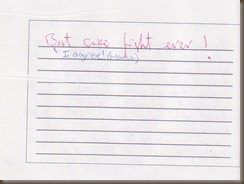 Best cake fight ever!
I agree!